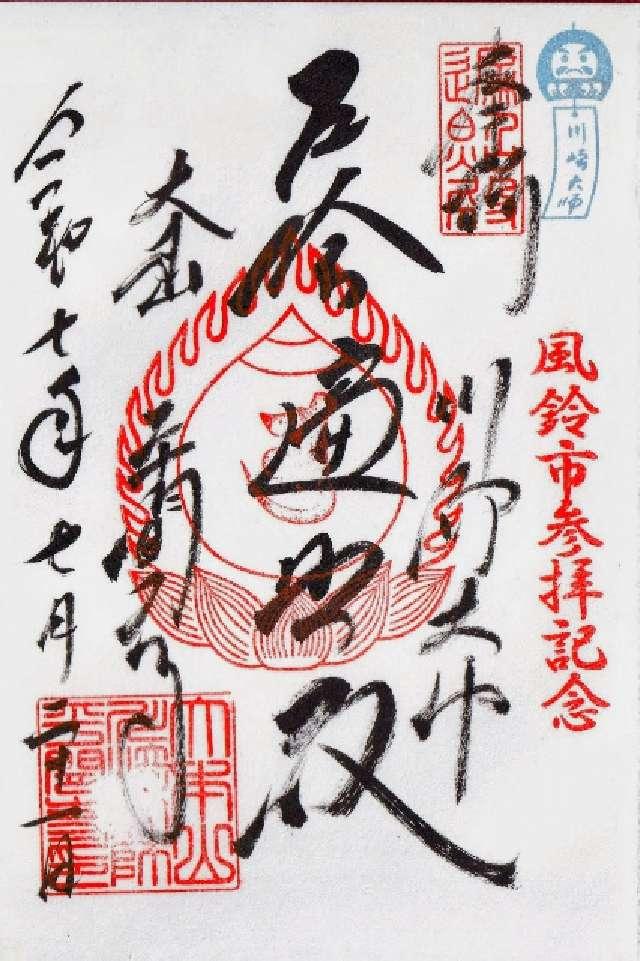 川崎大師
風鈴市参拝記念
奉拝
川崎大師
厄除遍照殿
大本山
平間寺
令和七年七月二十一日
遍照殿